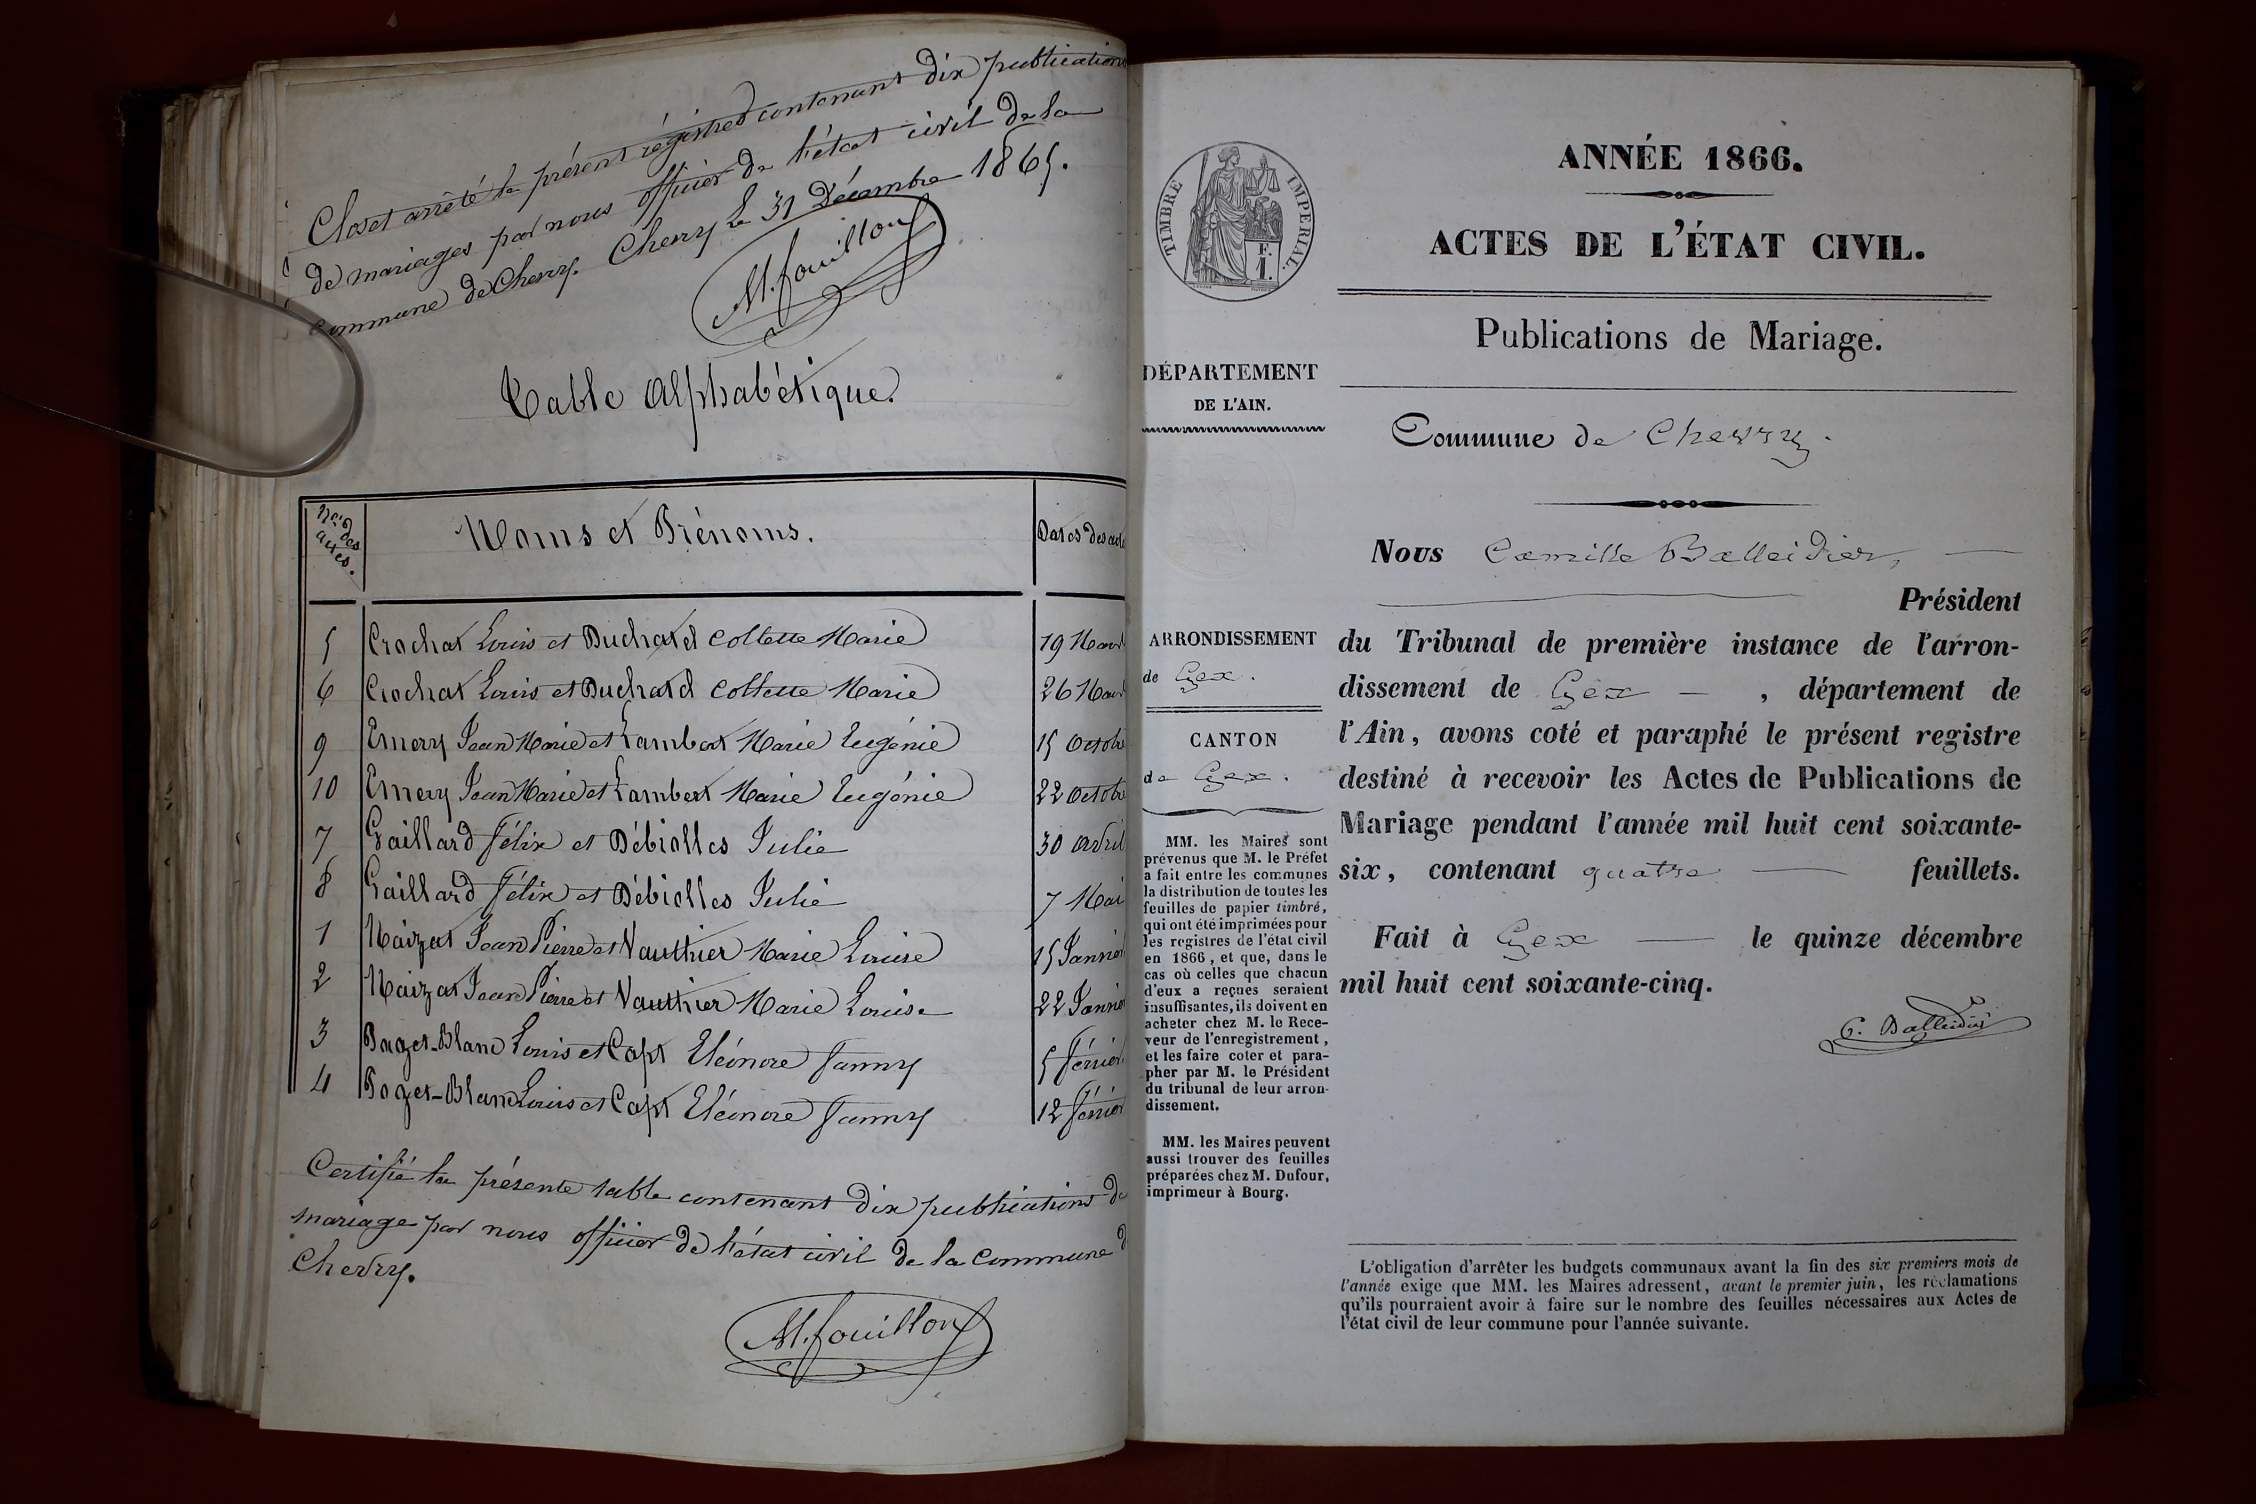 Clos et arrêté le présent régistre contenant dix publications
de mariages par nous officier de l'état civil de la
commune de Chevry. Chevry le 31 Décembre 1865.
M. fouilloux
Table Alphabétique.
Nos des actes. Noms et Prénoms. Dates des acte
5 Crochat Louis et Duchatel Collette Marie 19 Mars
6 Crochat Louis et Duchatel Collette Marie 26 Mars
9 Emery Jean Marie et Lambert Marie Eugénie 15 Octobre
10 Emery Jean Marie et Lambert Marie Eugénie 22 Octobre
7 Gaillard félix et Débiolles Julie 30 Avril
8 Gaillard félix et Débiolles Julie 7 Mai
1 Maizat Jean Pierre et Vauthier Marie Louise 15 Janvier
2 Maizat Jean Pierre et Vauthier Marie Louise 22 Janvier
3 Poget-Blanc Louis et Capt Eléonore fanny 5 février
4 Poget-Blanc Louis et Capt Eléonore fanny 12 février
Certifié la présente table contenant dix publications de
mariage par nous officier de l'état civil de la Commune d
Chevry.
M. fouilloux
TIMBRE IMPERIAL.
F.
1.
DÉPARTEMENT
DE L'AIN.
ARRONDISSEMENT
de Gex.
CANTON
de Gex.
MM. les Maires sont
prévenus que M. le Préfet
a fait entre les communes
la distribution de toutes les
feuilles de papier timbré,
qui ont été imprimées pour
les registres de l'état civil
en 1866, et que, dans le
cas où celles que chacun
d'eux a reçues seraient
insuffisantes, ils doivent en
acheter chez M. le Rece-
veur de l'enregistrement,
et les faire coter et para-
pher par M. le Président
du tribunal de leur arron-
dissement.
MM. les Maires peuvent
aussi trouver des feuilles
préparées chez M. Dufour,
imprimeur à Bourg.
ANNÉE 1866.
ACTES DE L'ÉTAT CIVIL.
Publications de Mariage.
Commune de Chevry.
Nous Camille Balleidier,
Président
du Tribunal de première instance de l'arron-
dissement de Gex, département de
l'Ain, avons coté et paraphé le présent registre
destiné à recevoir les Actes de Publications de
Mariage pendant l'année mil huit cent soixante-
six, contenant quatre feuillets.
Fait à Gex le quinze décembre
mil huit cent soixante-cinq.
C. Balleidier
L'obligation d'arrêter les budgets communaux avant la fin des six premiers mois de
l'année exige que MM. les Maires adressent, avant le premier juin, les réclamations
qu'ils pourraient avoir à faire sur le nombre des feuilles nécessaires aux Actes de
l'état civil de leur commune pour l'année suivante.